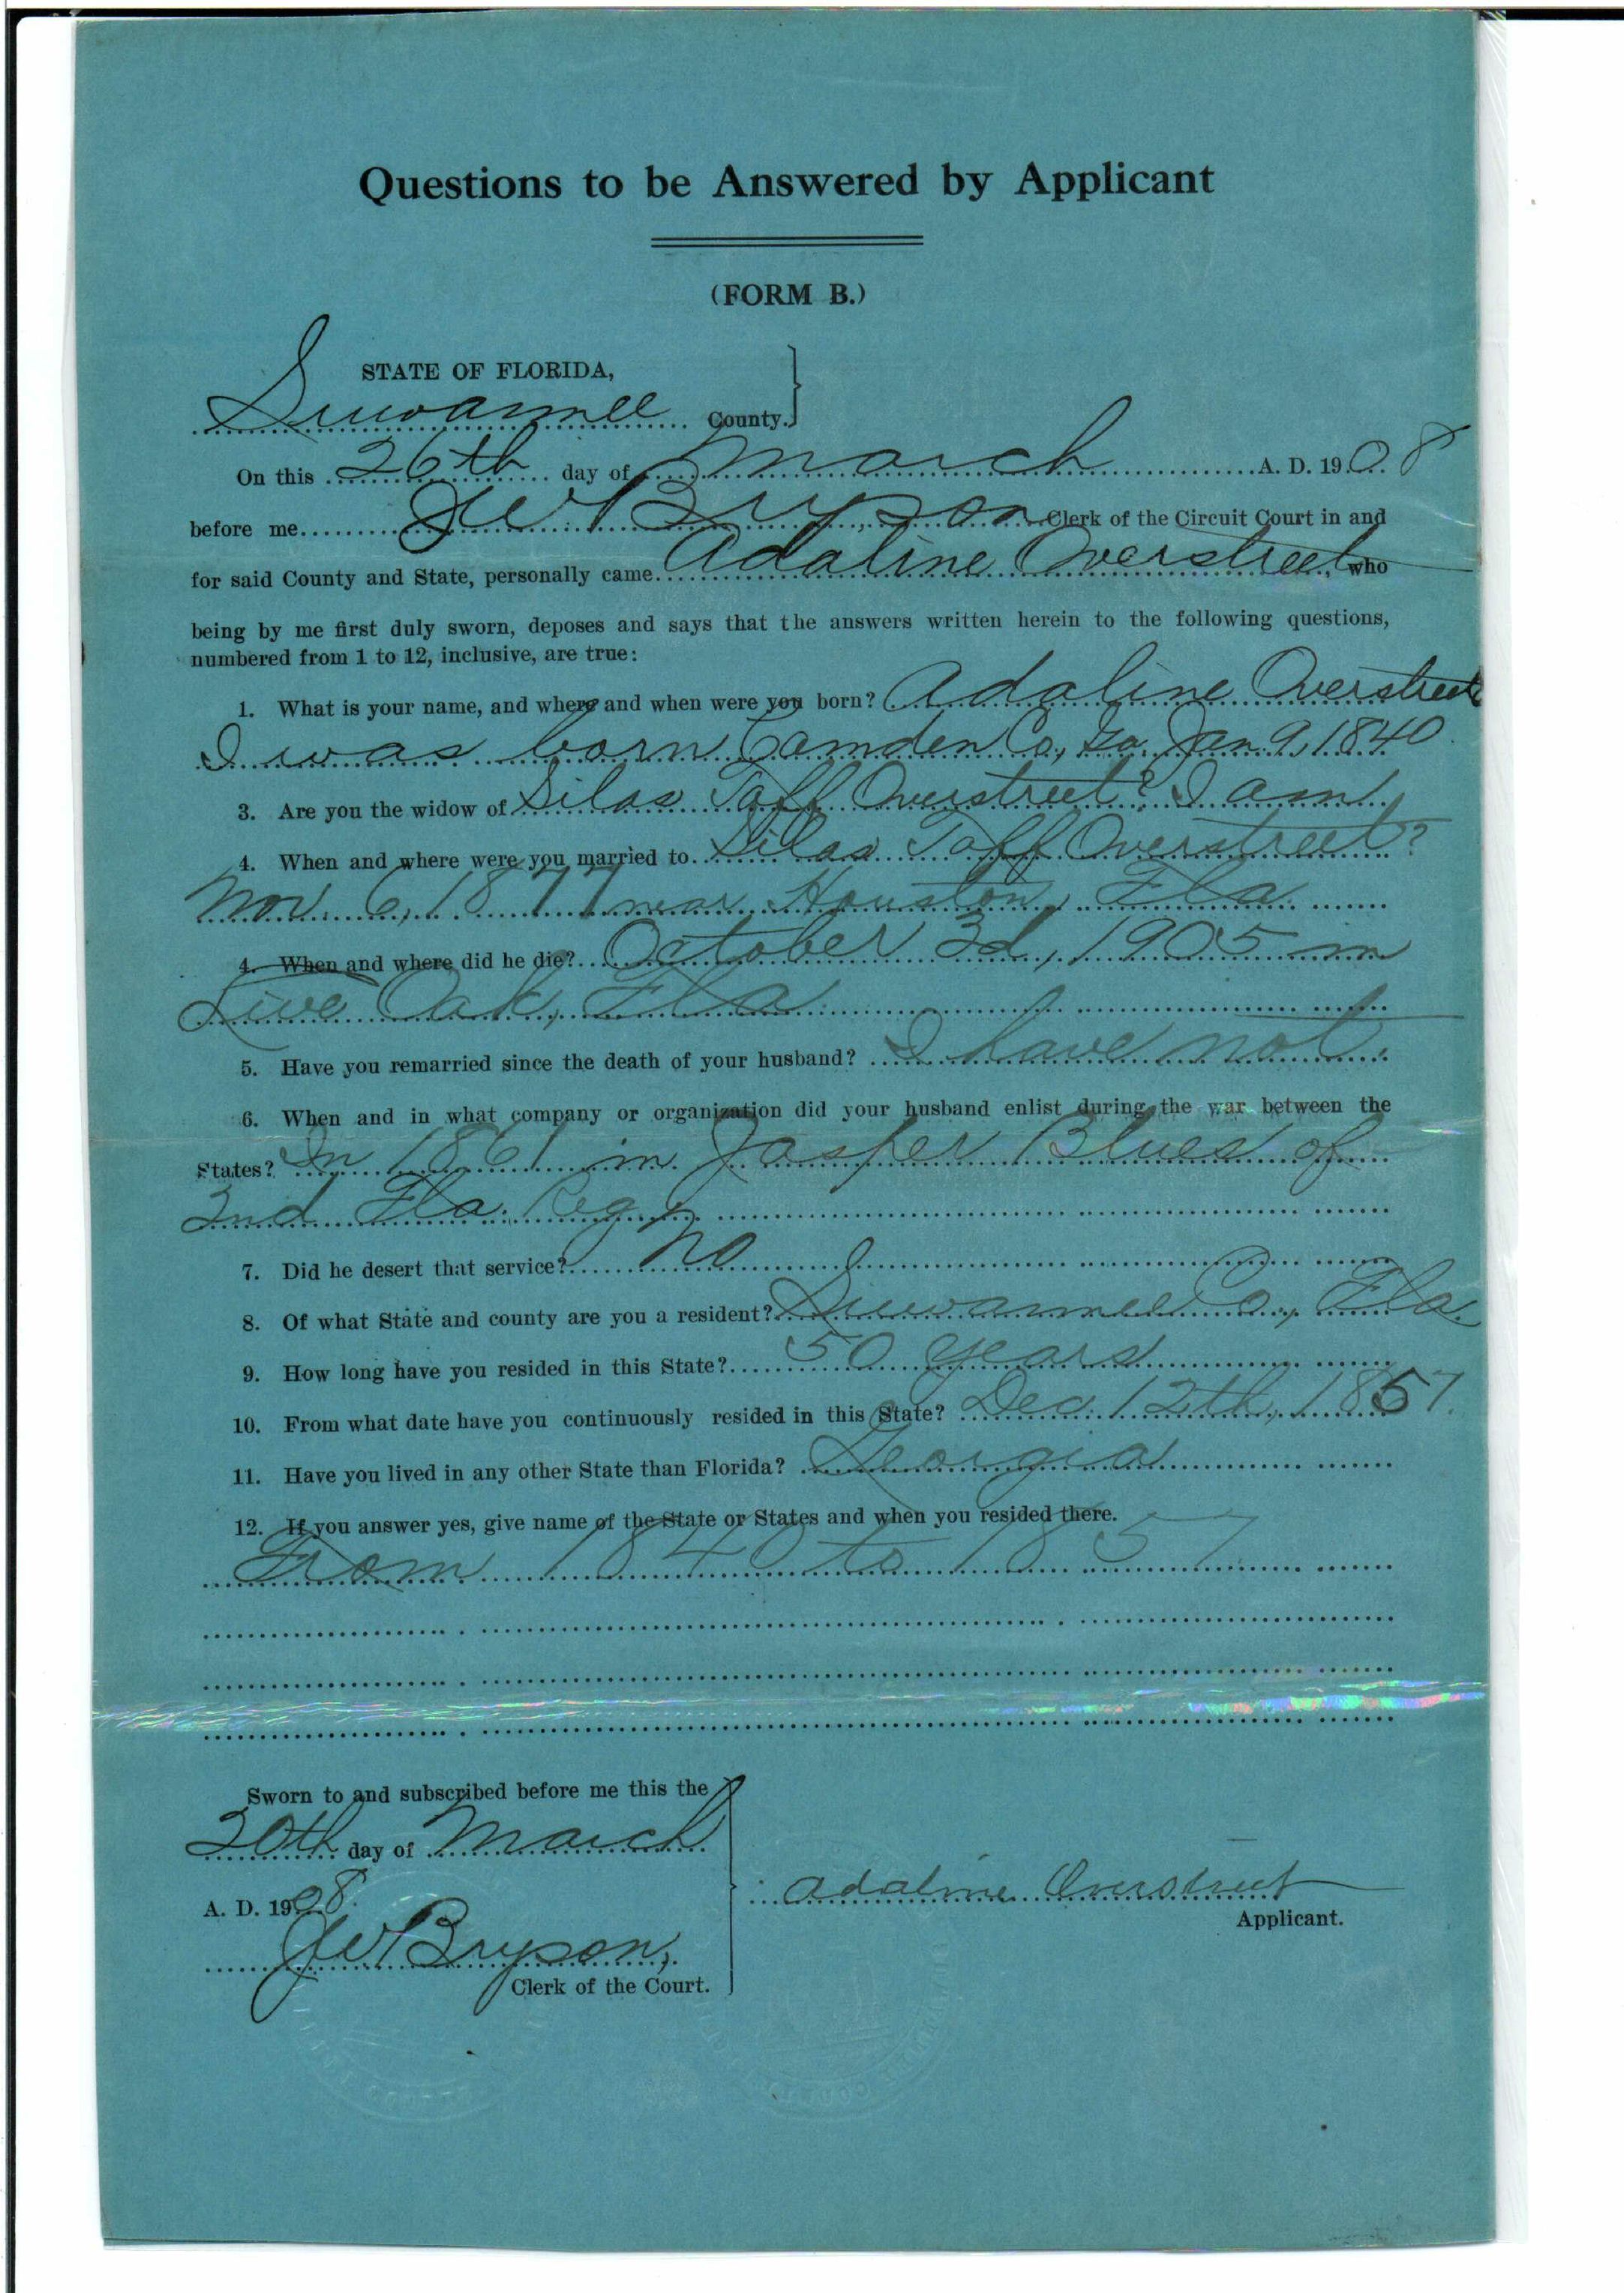 Questions to be Answered by Applicant
(FORM B.)
STATE OF FLORIDA,
Suwannee County.
On this 26th day of March A. D. 1908
before me J W Bryson Clerk of the Circuit Court in and
for said County and State, personally came Adaline Overstreet, who
being by me first duly sworn, deposes and says that the answers written herein to the following questions,
numbered from 1 to 12, inclusive, are true:
1. What is your name, and where and when were you born? Adaline Overstreet
I was born Camden Co., Ga. Jan 9, 1840
3. Are you the widow of Silas Taff Overstreet? I am
4. When and where were you married to Silas Taff Overstreet?
Nov. 6, 1877 near Houston, Fla.
4. When and where did he die? October 3d, 1905 in
Live Oak, Fla.
5. Have you remarried since the death of your husband? I have not.
6. When and in what company or organization did your husband enlist during the war between the
States? In 1861 in Jasper Blues of
2nd Fla. Reg.
7. Did he desert that service? No
8. Of what State and county are you a resident? Suwannee Co., Fla.
9. How long have you resided in this State? 50 years
10. From what date have you continuously resided in this State? Dec. 12th, 1857.
11. Have you lived in any other State than Florida? Georgia
12. If you answer yes, give name of the State or States and when you resided there.
From 1840 to 1857
Sworn to and subscribed before me this the
20th day of March
A. D. 1908.
J W Bryson,
Clerk of the Court.
Adaline Overstreet
Applicant.